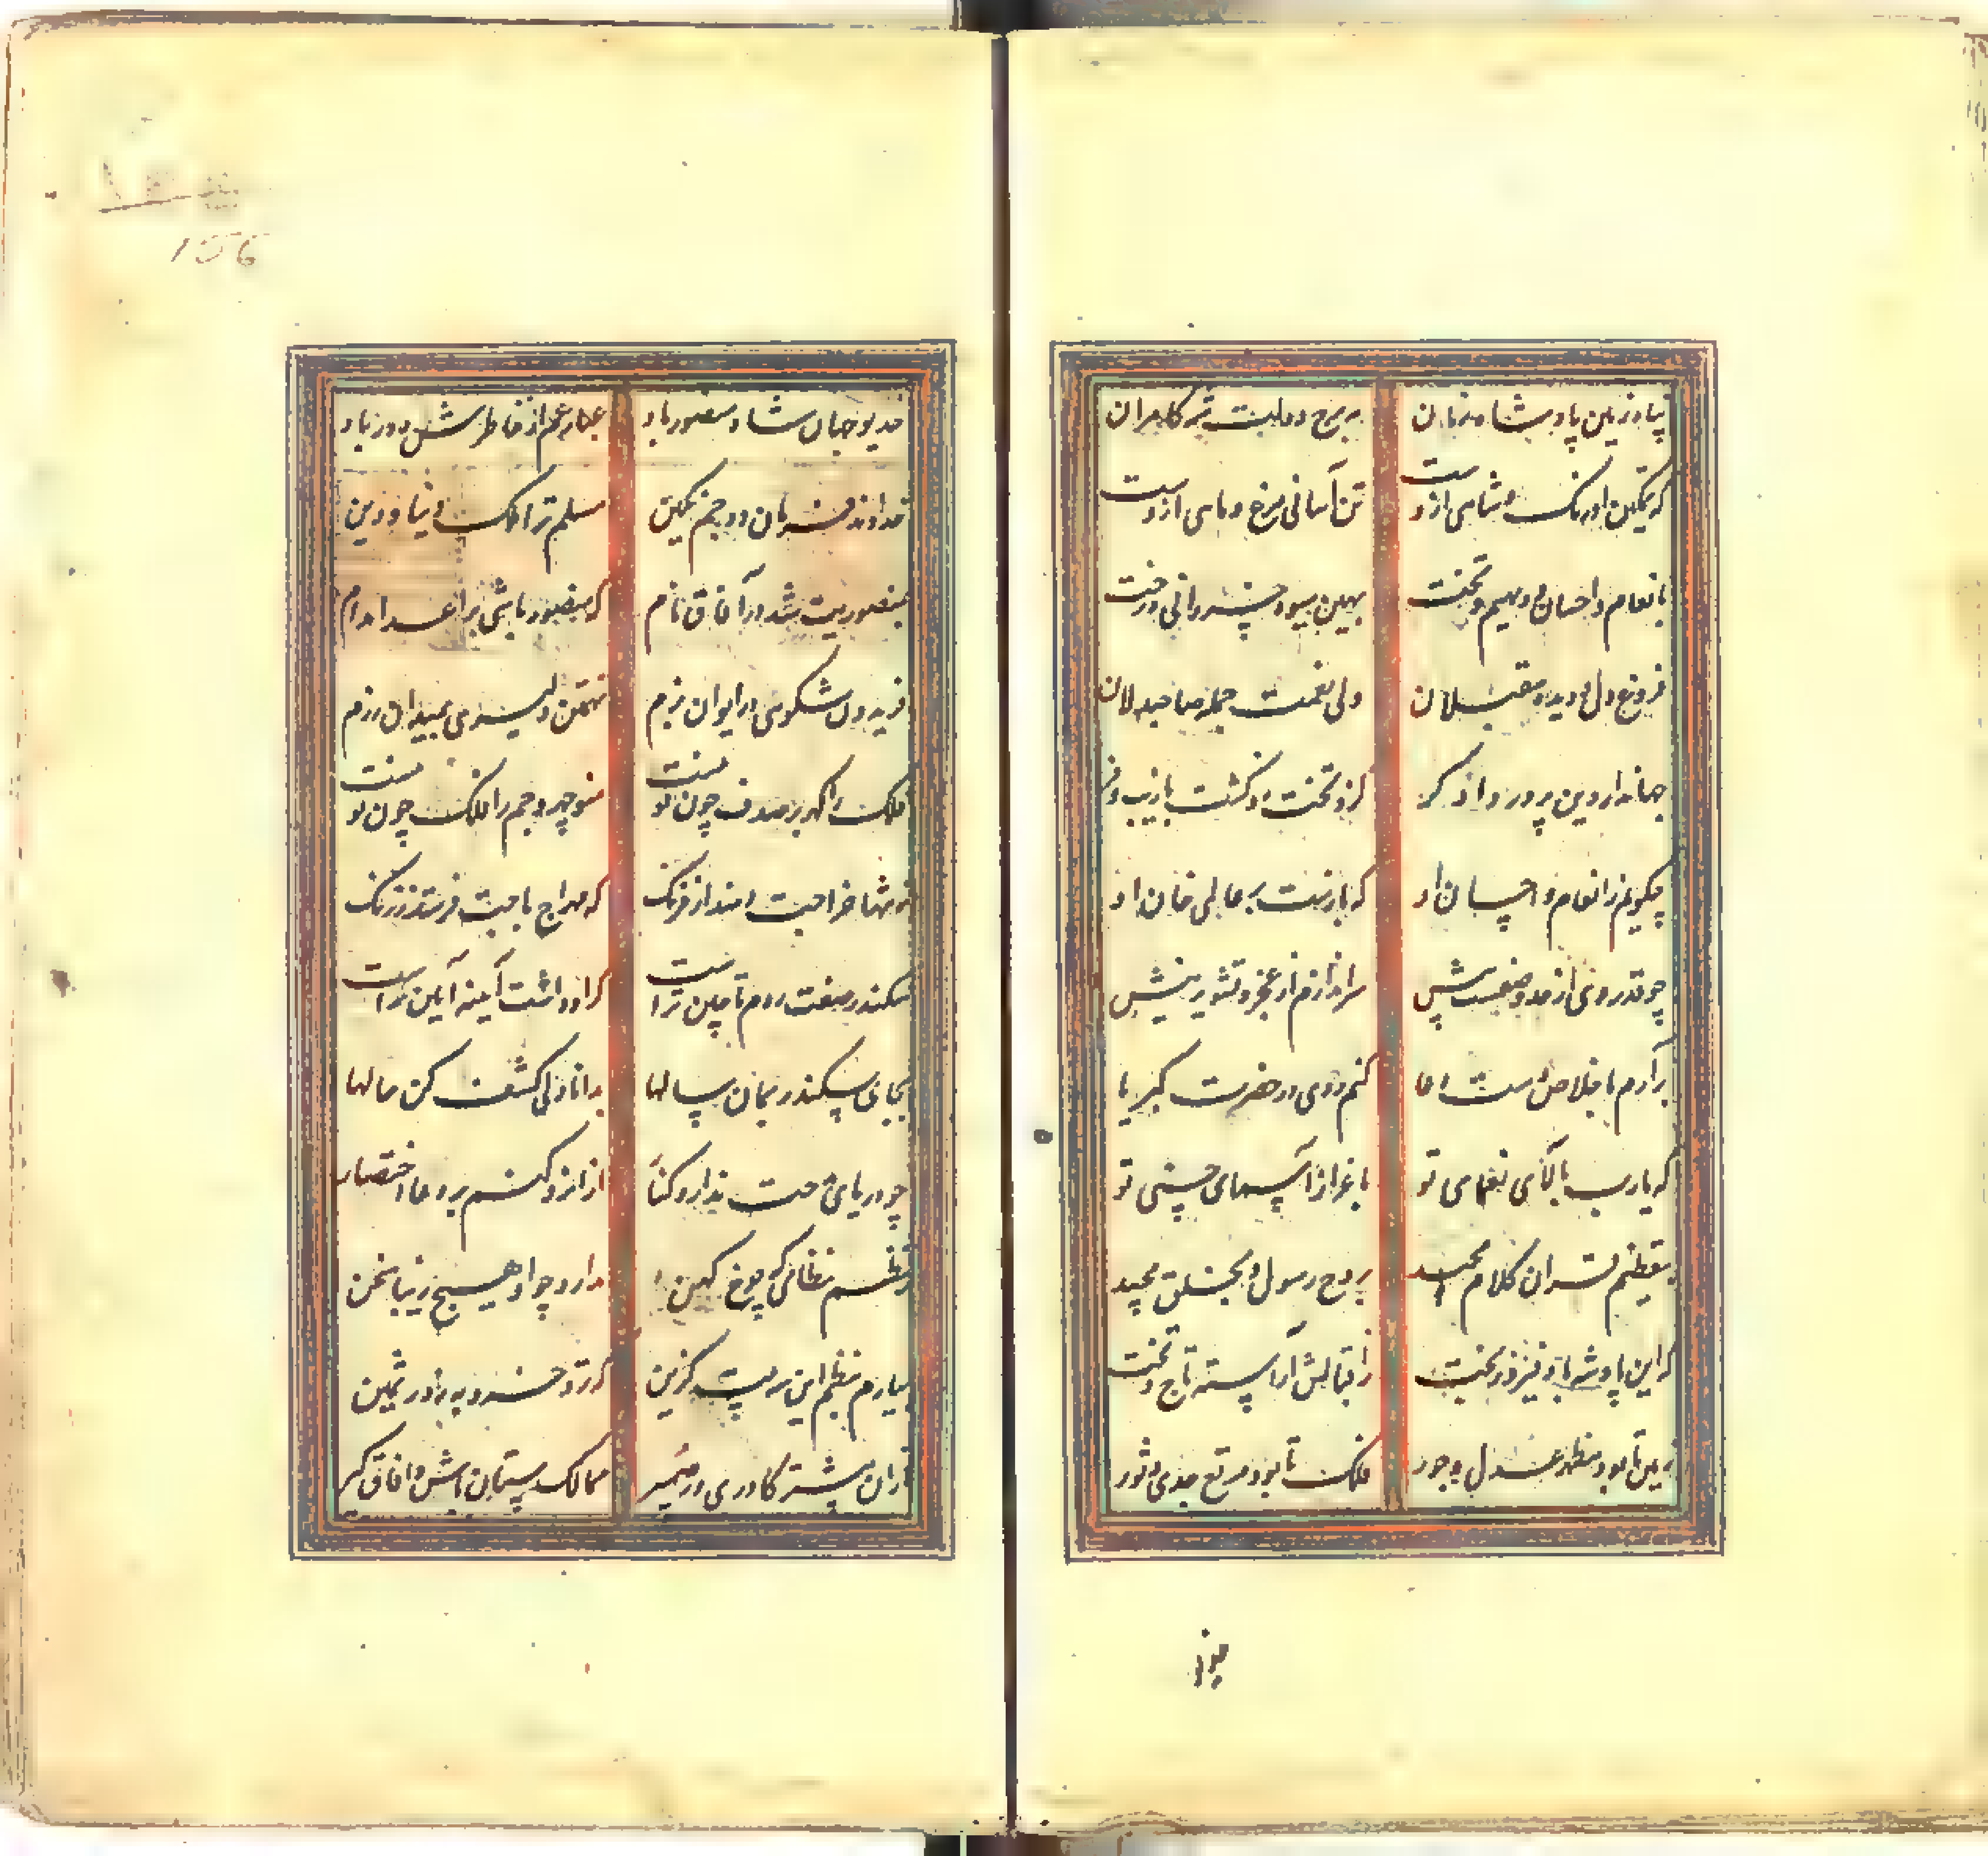 پناه زمین پادشاه زمان به برج دولت تیر کامران
که تمکین اورنک و شاهی ازوست تن آسانی مرغ و ماهی ازوست
بانعام و احسان و دیهیم و تخت بهین میوه خسروانی درخت
فروغ دل و دیده مقبلان ولی نعمت جمله صاحبدلان
جهاندار دین پرور دادکر کزو تخت زر کشت با زیب و فر
چکویم ز انعام و احسان او که بارنست بر عالمی خان او
سرافرازم از عجز و تشویر پیش
برآرم باخلاص دست دعا کنم روی در حضرت کبریا
که یارب بالای نعمای تو باعزاز اسمای حسنی تو
بتعظیم قران کلام مجید بروح رسول و بخلق
که این پادشه باد فیروزبخت ز اقبالش آراسته تاج و تخت
زمین تا بود مظهر عدل و جور فلک تا بود مرتع جدی و ثور
خدیو جهان شاه منصور باد غبار غم از خاطرش دور باد
خداوند فرمان و جم نکین مسلم ترا ملک دنیا و دین
بمنصوریت شد در آفاق نام که منصور باشی بر اعدا مدام
فریدون شکوهی در ایوان بزم تهمتن دلیری بمیدان رزم
فلک را کهر در صدف چون تو نیست فریدون و جم را خلف چون تو نیست
نه تنها خراجت دهند از فرنک که مهراج باجت فرستد ز زنک
سکندر صفت روم تا چین تراست کر او داشت آیینه آیین تراست
بجای سکندر بمان سالها بدانا دلی کشف کن حالها
چو دریای مدحت ندارد کنار از آنرو کنم بر دعا اختصار
ز نظم نظامی که چرخ کهن ندارد چو او هیچ زیبا سخن
بیارم نظم این سه بیت کزین که نزد خرد به ز در ثمین
از آن بیشتر کاوری در ضمیر ممالک ستان باش و آفاق کیر
خدیو
156